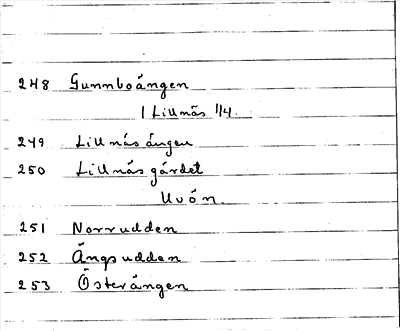 248 Gunnboängen
1 Lillnäs 1/4
249 Lillnäsängen
250 Lillnäsgärdet
Uvön.
251 Norrudden
252 Ängsudden
253 Österängen